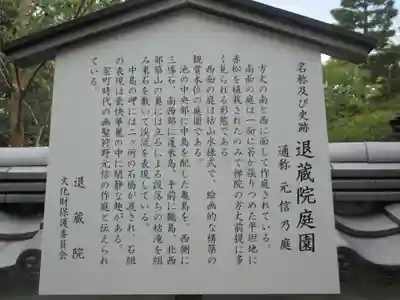 名称及び史跡 退蔵院庭園
通称 元信乃庭
方丈の南と西に面して作庭されている。
南面の庭は一面に苔が張りつめた平坦地に
赤松を植栽されたのみで禅院の方丈前提に多
く見られる形態である
西面の庭は枯山水様式で、絵画的な構築の
観賞本位の庭園である。
池の中央部に中島を配した亀島を、西側に
三尊石、南西部に蓬萊島、手前に亀島、北西
部築山の裏には立石による段落ちの枯滝を組
み栗石を敷いて渓流を表現している。
中島の岬には二ヶ所の石橋が渡され、石組
の表現は豪快華麗の中に閑静な趣がある。
室町時代の画聖狩野元信の作庭と伝えられ
ている。
退蔵院
文化財保護委員会